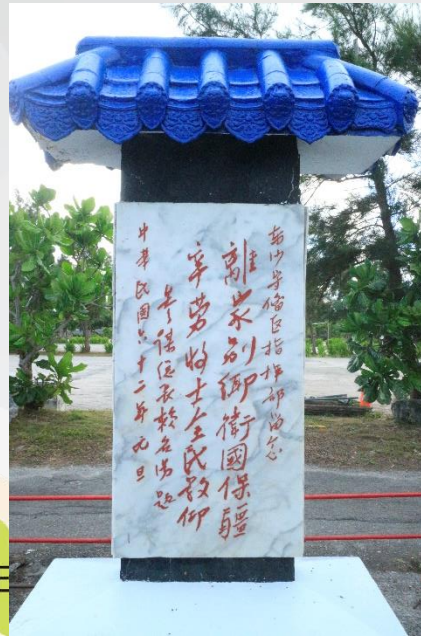 南沙守備區指揮部留念
離家別鄉衛國保疆
辛勞將士全民敬仰
參謀總長賴名湯題
中華民國六十二年元旦